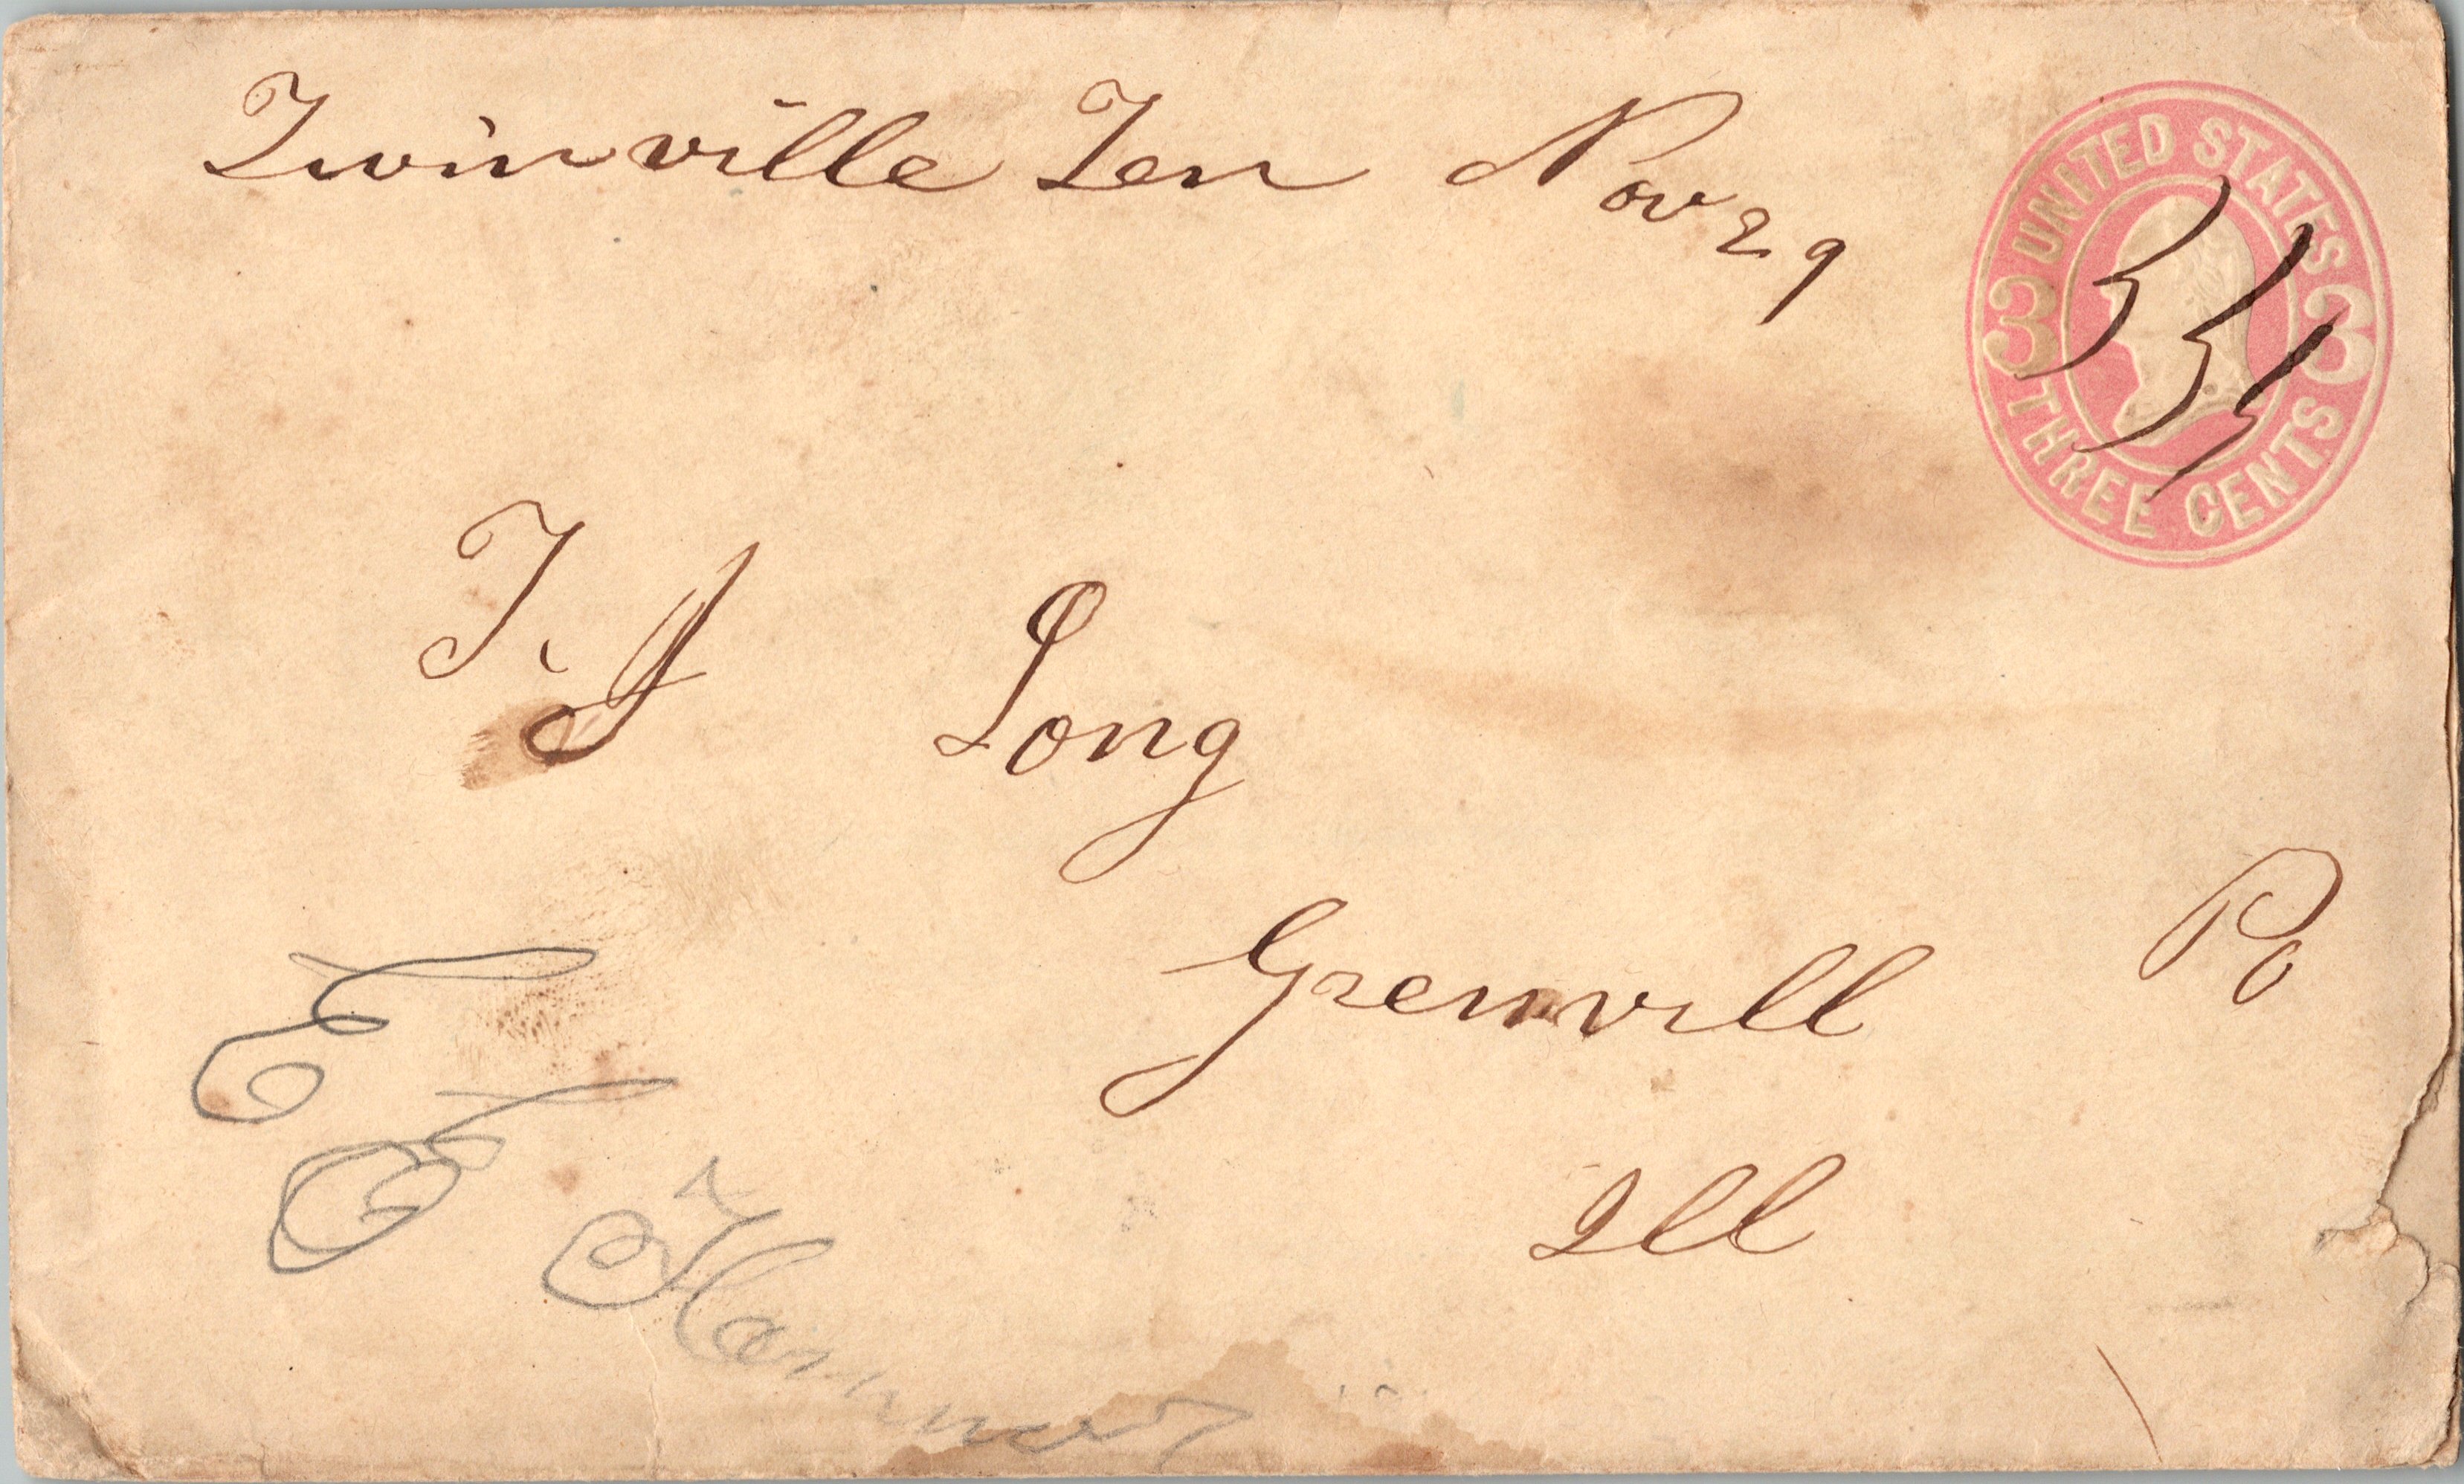 Twinville Ten Nov 29
UNITED STATES
3 3
THREE CENTS
T. A Long
Grenvill Po
Ill
E